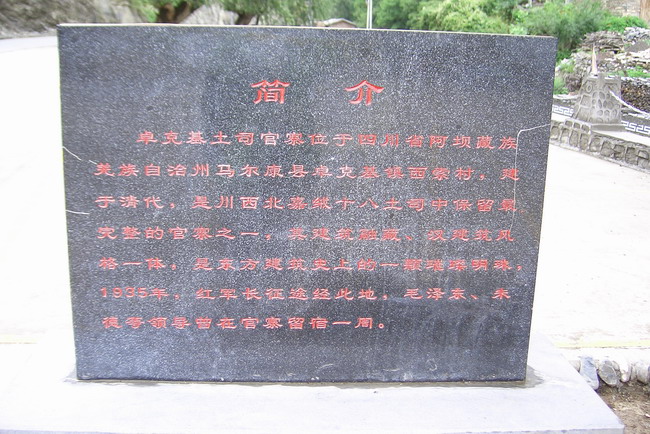 简 介
卓克基土司官寨位于四川省阿坝藏族
羌族自治州马尔康县卓克基镇西索村，建
于清代，是川西北嘉绒十八土司中保留最
完整的官寨之一，其建筑融藏、汉建筑风
格一体，是东方建筑史上的一颗璀璨明珠，
1935年，红军长征途经此地，毛泽东、朱
德等领导曾在官寨留宿一周。